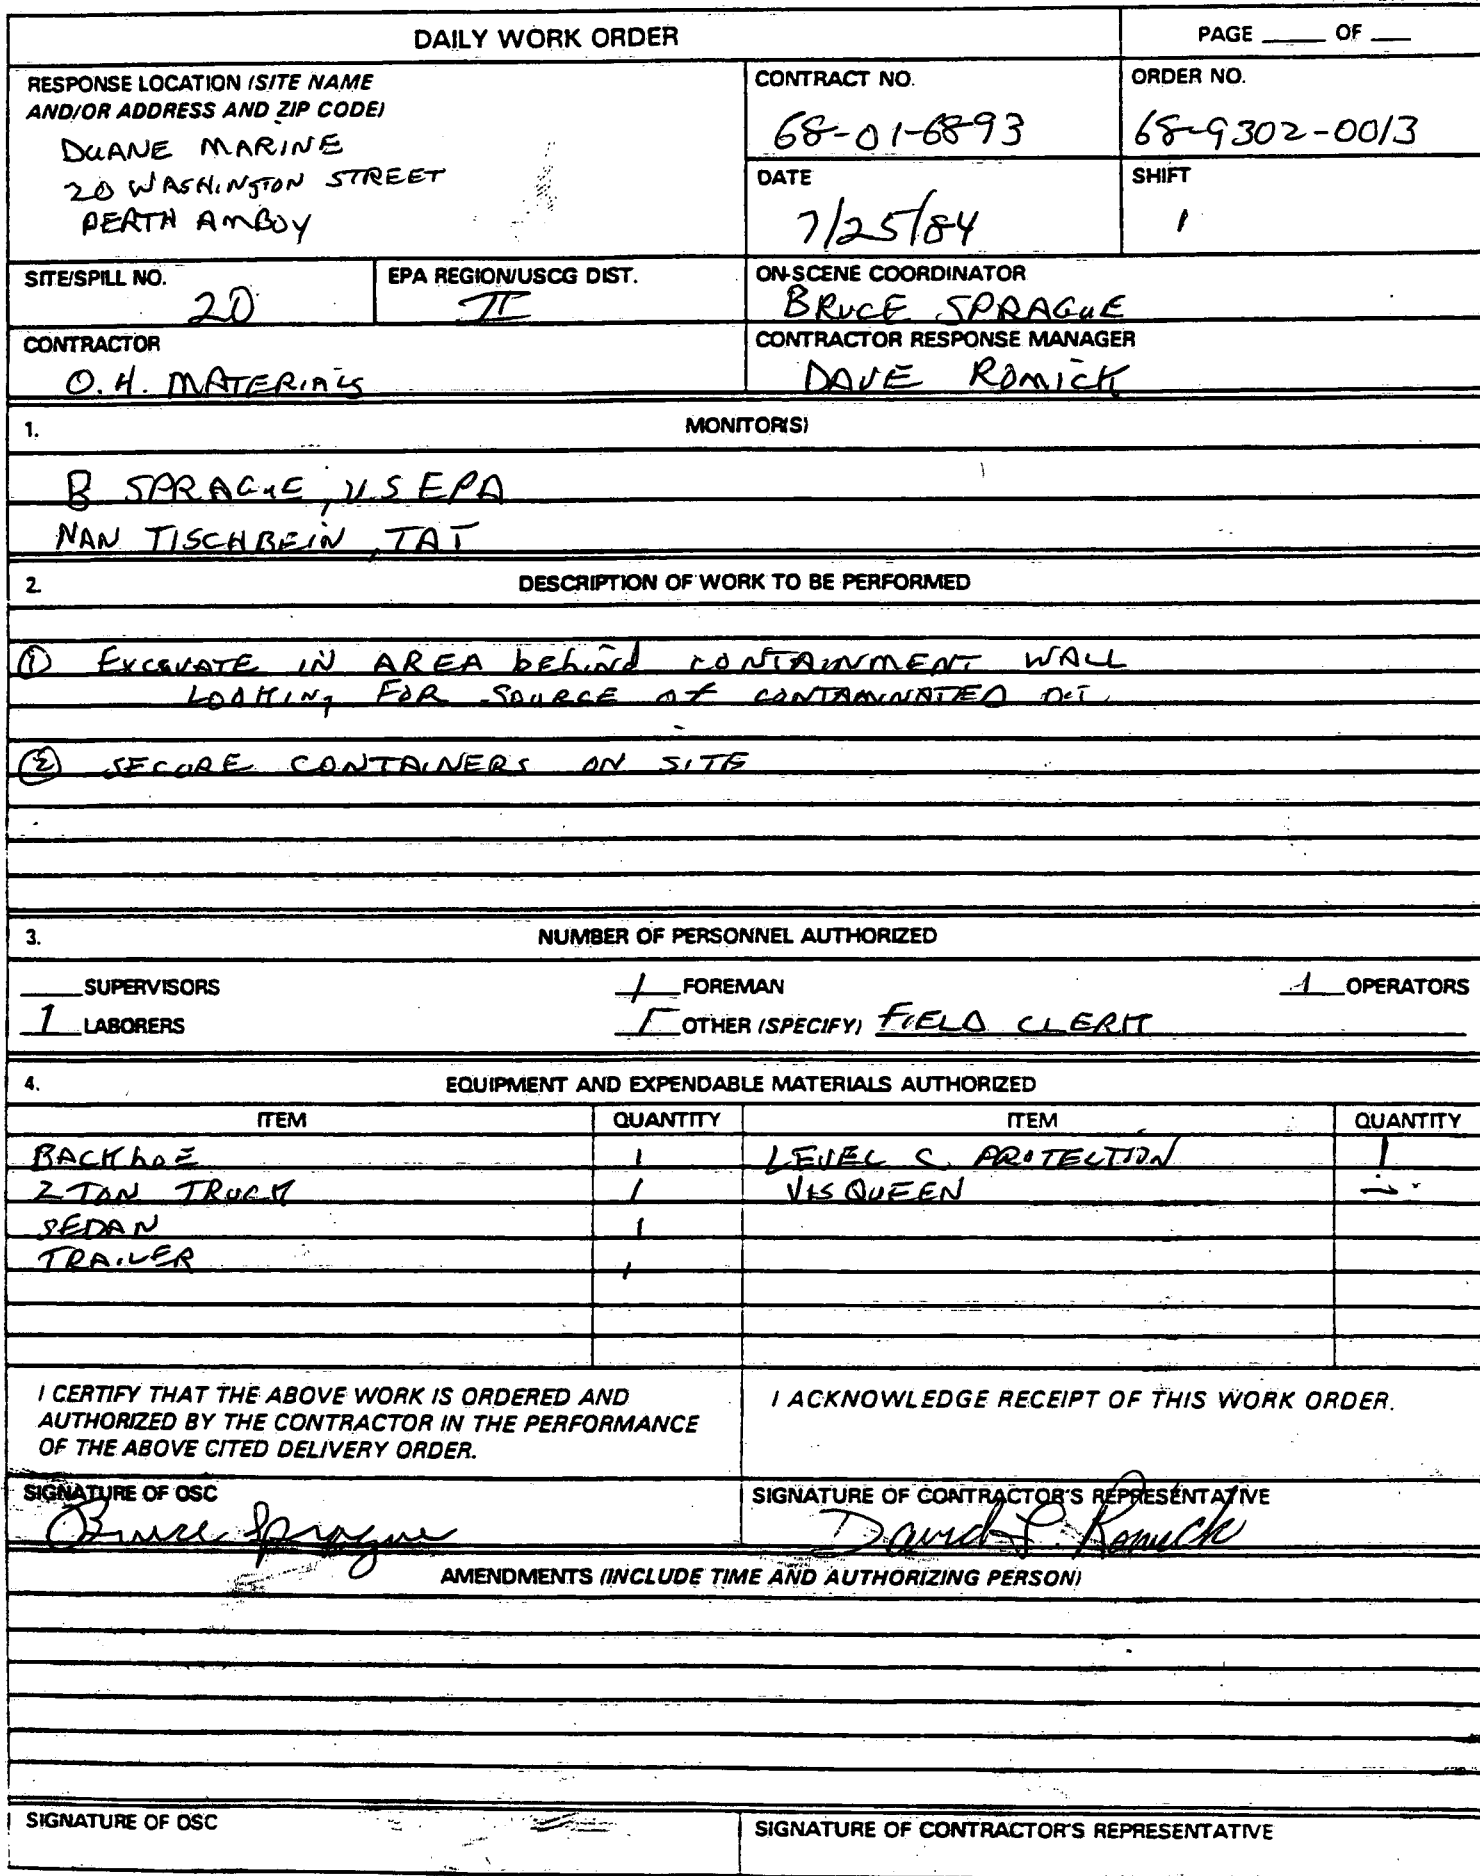 DAILY WORK ORDER
PAGE ____ OF ___
RESPONSE LOCATION (SITE NAME
AND/OR ADDRESS AND ZIP CODE)
DUANE MARINE
20 WASHINGTON STREET
PERTH AMBOY
CONTRACT NO.
68-01-6893
ORDER NO.
68-9302-0013
DATE
7/25/84
SHIFT
1
SITE/SPILL NO.
20
EPA REGION/USCG DIST.
II
ON-SCENE COORDINATOR
BRUCE SPRAGUE
CONTRACTOR
O.H. MATERIALS
CONTRACTOR RESPONSE MANAGER
DAVE ROMICK
1. MONITOR(S)
B SPRAGUE, US EPA
NAN TISCHBEIN, TAT
2. DESCRIPTION OF WORK TO BE PERFORMED
① EXCAVATE IN AREA behind CONTAINMENT WALL
LOOKING FOR SOURCE OF CONTAMINATED
② SECURE CONTAINERS ON SITE
3. NUMBER OF PERSONNEL AUTHORIZED
____SUPERVISORS 1 FOREMAN 1 OPERATORS
1 LABORERS 1 OTHER (SPECIFY) FIELD CLERK
4. EQUIPMENT AND EXPENDABLE MATERIALS AUTHORIZED
ITEM QUANTITY ITEM QUANTITY
BACKhoE 1 LEVEL C PROTECTION 1
2 TON TRUCK 1 VISQUEEN
SEDAN 1
TRAILER 1
I CERTIFY THAT THE ABOVE WORK IS ORDERED AND
AUTHORIZED BY THE CONTRACTOR IN THE PERFORMANCE
OF THE ABOVE CITED DELIVERY ORDER.
I ACKNOWLEDGE RECEIPT OF THIS WORK ORDER.
SIGNATURE OF OSC
Bruce Sprague
SIGNATURE OF CONTRACTOR'S REPRESENTATIVE
David L. Romick
AMENDMENTS (INCLUDE TIME AND AUTHORIZING PERSON)
SIGNATURE OF OSC
SIGNATURE OF CONTRACTOR'S REPRESENTATIVE